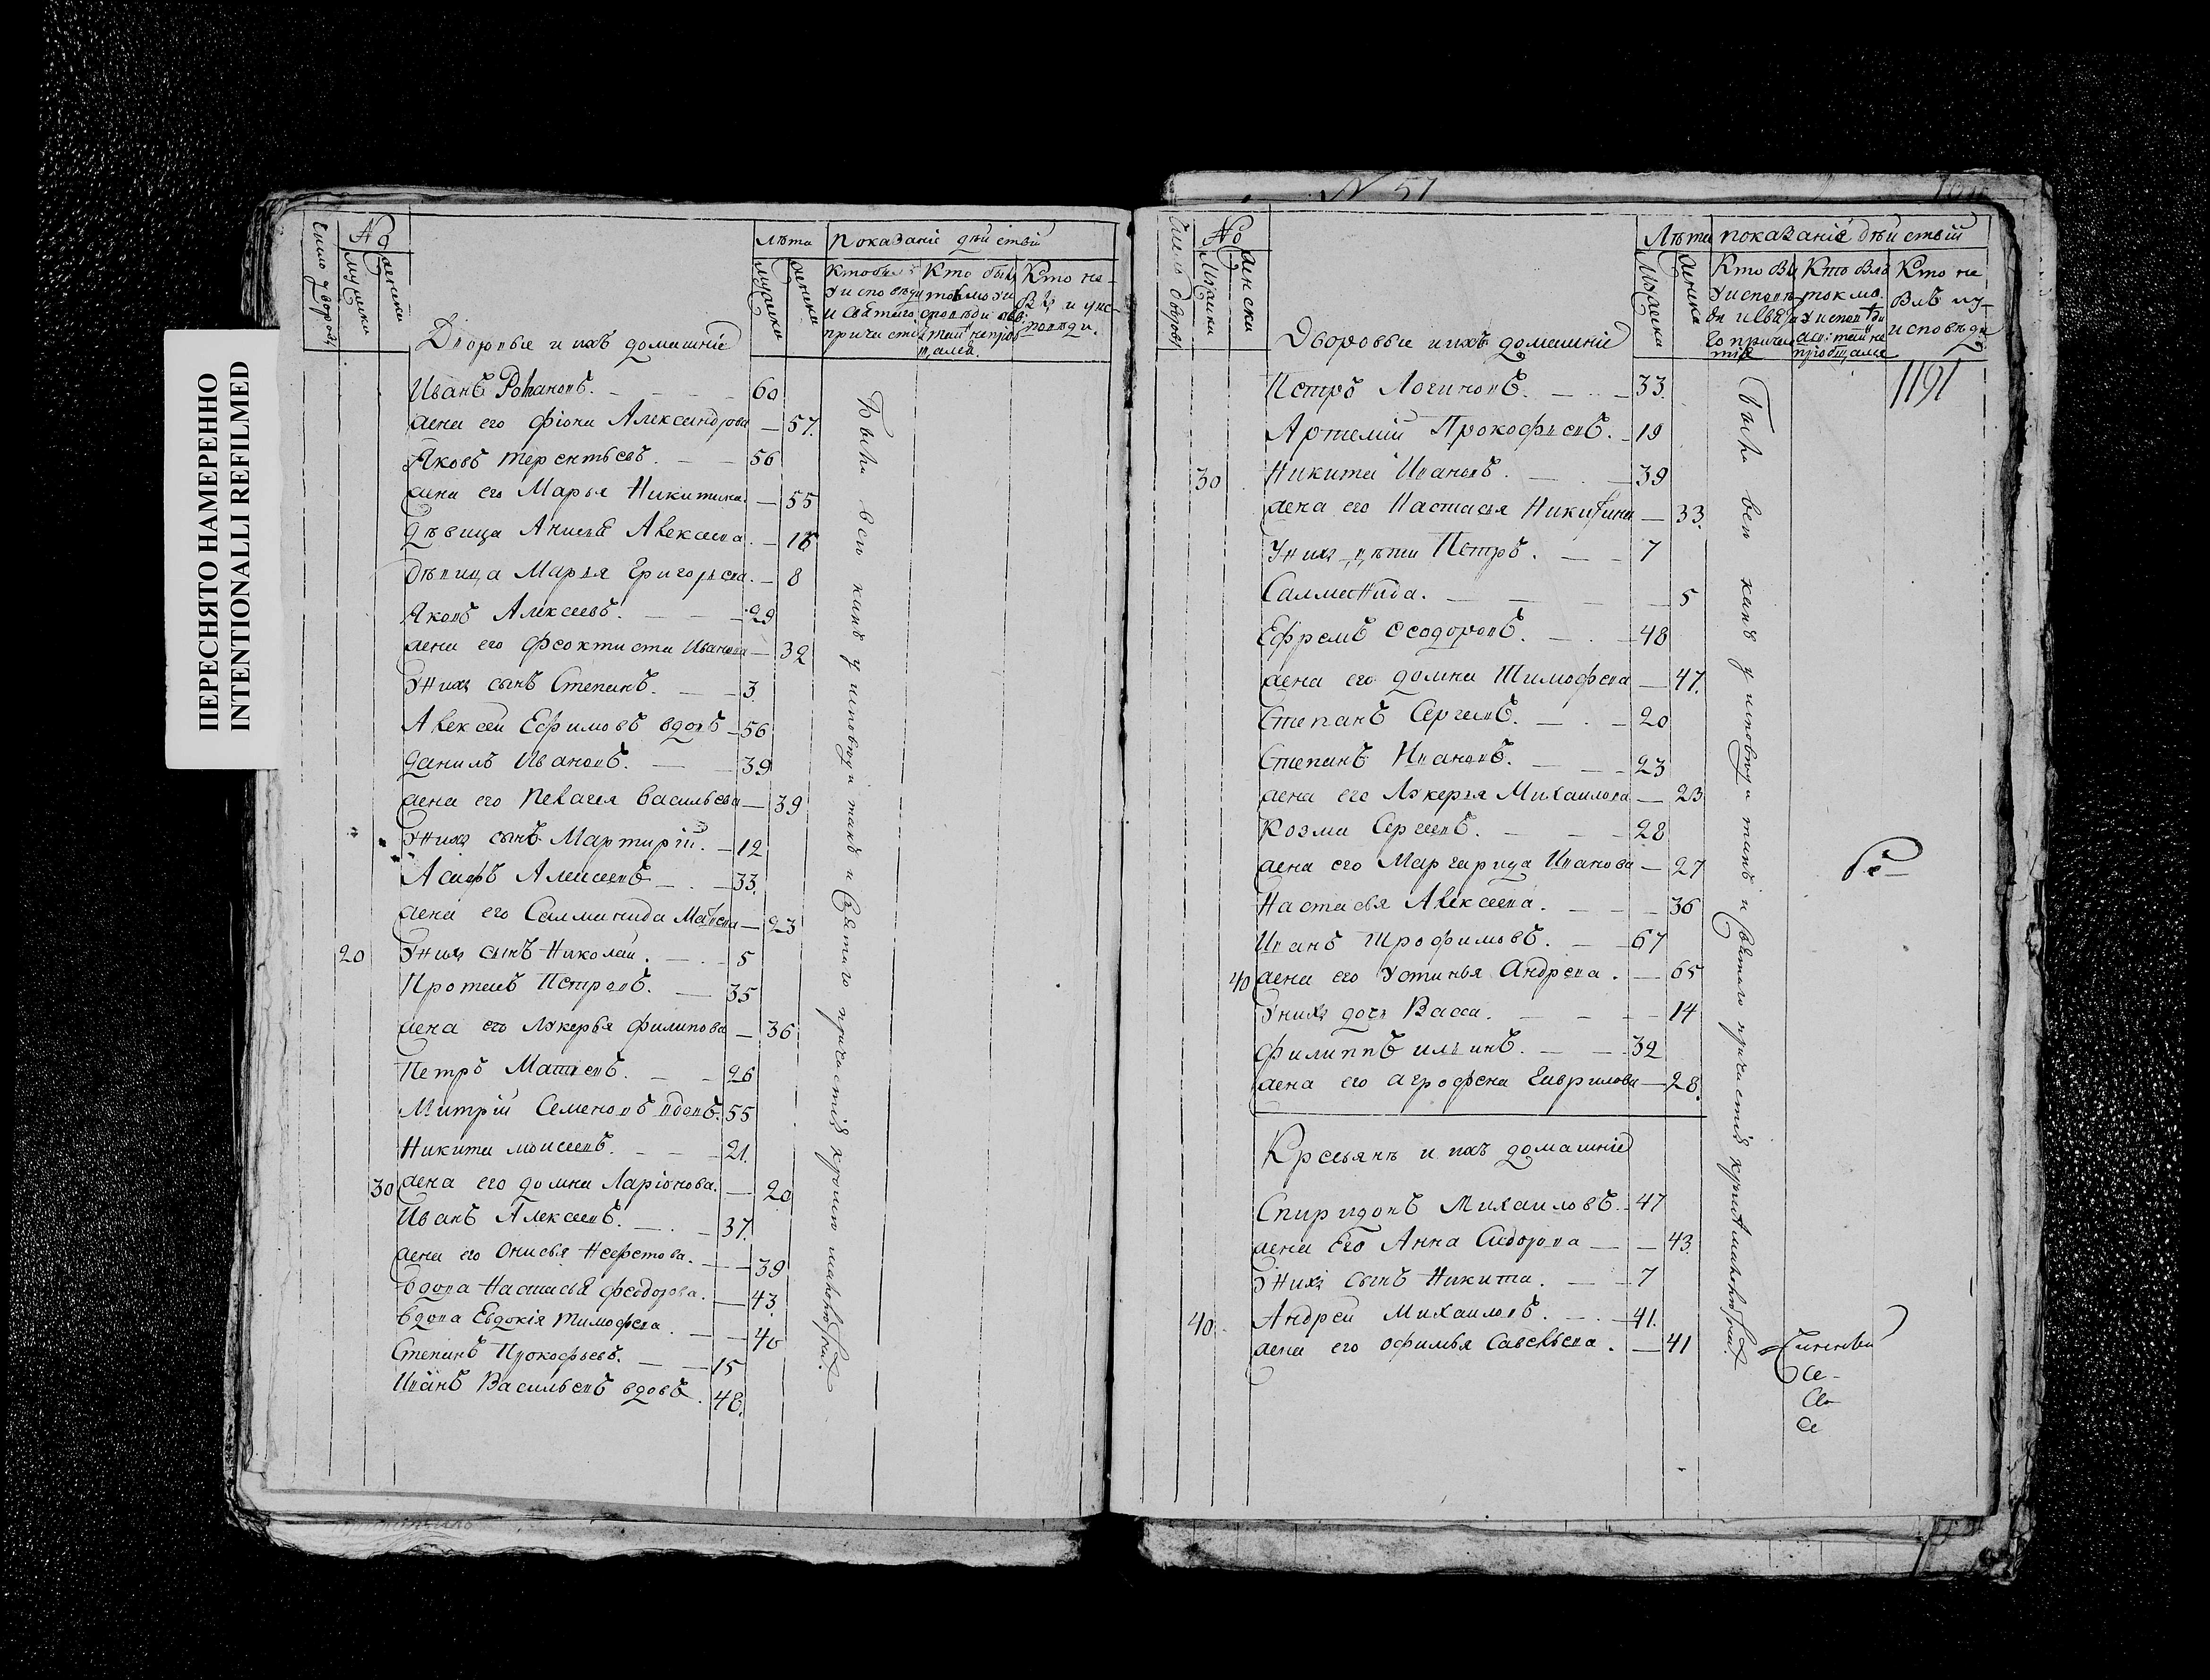 ПЕРЕСНЯТО НАМЕРЕННО
INTENTIONALLI REFILMED
Число дворовъ
№
мужески
женски
Дворовые и ихъ домашніе
Лѣта
мужески
женски
показаніе дѣйствій
Кто былъ у исповѣди и святаго причастія
Кто былъ токмо у исповѣди а св: таинъ не пріобщался
Кто не былъ и у исповѣди
Иванъ Романовъ. 60
жена его Фіона Александрова 57.
Яковъ Терентьевъ. 56
жена его Марья Никитина. 55
дѣвица Анисья Алексеева. 18
дѣвица Марья Григорьева. 8
Яковъ Алексеевъ. 29
жена его Феоктиста Иванова 32
У нихъ сынъ Степанъ. 3
Алексеи Ефимовъ вдовъ 56
Данилъ Ивановъ. 39
жена его Пелагея Васильева 39
У нихъ сынъ Мартирій. 12
Асифъ Алексеевъ 33.
жена его Саламанида 23
20 У нихъ сынъ Николаи. 5
Петровъ. 35
жена его Лукерья Филипова 36
Петръ Матвевъ. 26
Митрій Семеновъ вдовъ. 55
Никита Моисеевъ. 21.
30 жена его Домна Ларіонова. 20
Иванъ Алексеевъ. 37.
жена его Онисья Неофетова. 39
вдова Настасья Феодорова. 43.
вдова Евдокія Тимофева. 40
Степанъ Прокофьевъ. 15
Иванъ Васильевъ вдовъ 48.
Были вси какъ у исповѣди такъ и святаго причастія кромѣ малолѣтных
№ 57
Число дворовъ
№
Мужески
женски
Дворовые и ихъ домашніе
Лѣта
Мужески
женски
показаніе дѣйствій
Кто былъ у исповѣди и святаго причастія
Кто былъ токмо у исповѣди а св: таинъ не пріобщался
Кто не былъ и у исповѣди
1191
Петръ Логиновъ. 33.
Артемій Прокофьевъ. 19
30 Никита Ивановъ. 39
жена его Настасья Никитина 33.
У нихъ дѣти Петръ. 7
Саламанида. 5
Ефремъ Феодоровъ. 48
жена его Домна Тимофева 47.
Степанъ Сергеевъ. 20
Степанъ Ивановъ. 23
жена его Лукерья Михаилова 23
Козма Сергеевъ. 28
жена его Маргарида Иванова 27
Настасья Алексеева. 36
Иванъ Трофимовъ. 67
40 жена его Устинья Андрева. 65
У нихъ дочь Васса. 14
Филиппъ Ильинъ. 32
жена его Агрофена Гаврилова 28.
Кресьянъ и ихъ домашніе
Спиридонъ Михаиловъ. 47
жена его Анна Сидорова 43.
У нихъ сынъ Никита. 7
40 Андреи Михаиловъ. 41.
жена его Офимья Савельева. 41
Были вси какъ у исповѣди такъ и святаго причастія кромѣ малолѣтных